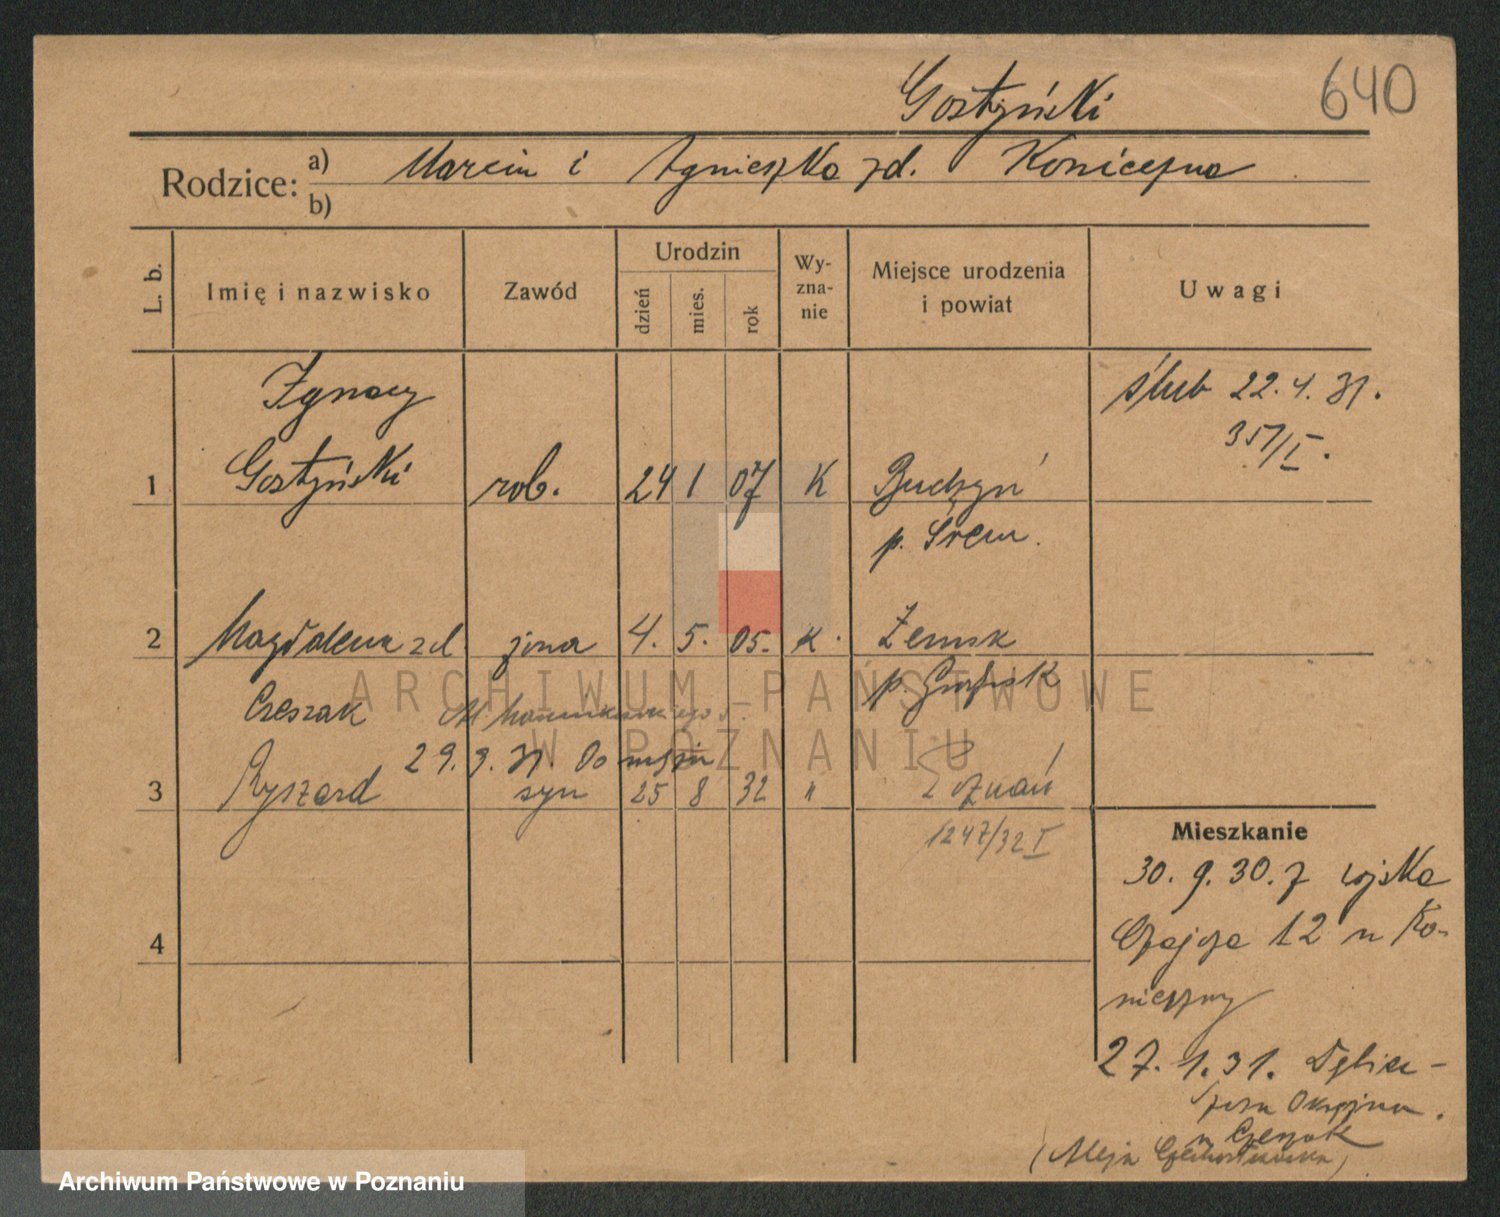 Gostyński
640
Rodzice: a) Marcin i Agnieszka zd. Konieczna
b)
L. b.
Imię i nazwisko
Zawód
Urodzin
dzień
mies.
rok
Wy-
zna-
nie
Miejsce urodzenia
i powiat
Uwagi
Ignacy
ślub 22.4.31.
351/I.
1 Gostyński rob. 24 1 07 K
p. Śrem.
2 Magdalena zd. żona 4. 5. 05. K. Żemsk
p.
Czeszak
29.9.31. Do
3 Ryszard syn 25 8 32 " Poznań
1247/32 I
Mieszkanie
30. 9. 30. z wojska
Czajcza 12 u Ko-
nieczny
4
27. 1. 31. Dębiec -
u Czeszak
(Aleja
ARCHIWUM PAŃSTWOWE
W POZNANIU
Archiwum Państwowe w Poznaniu